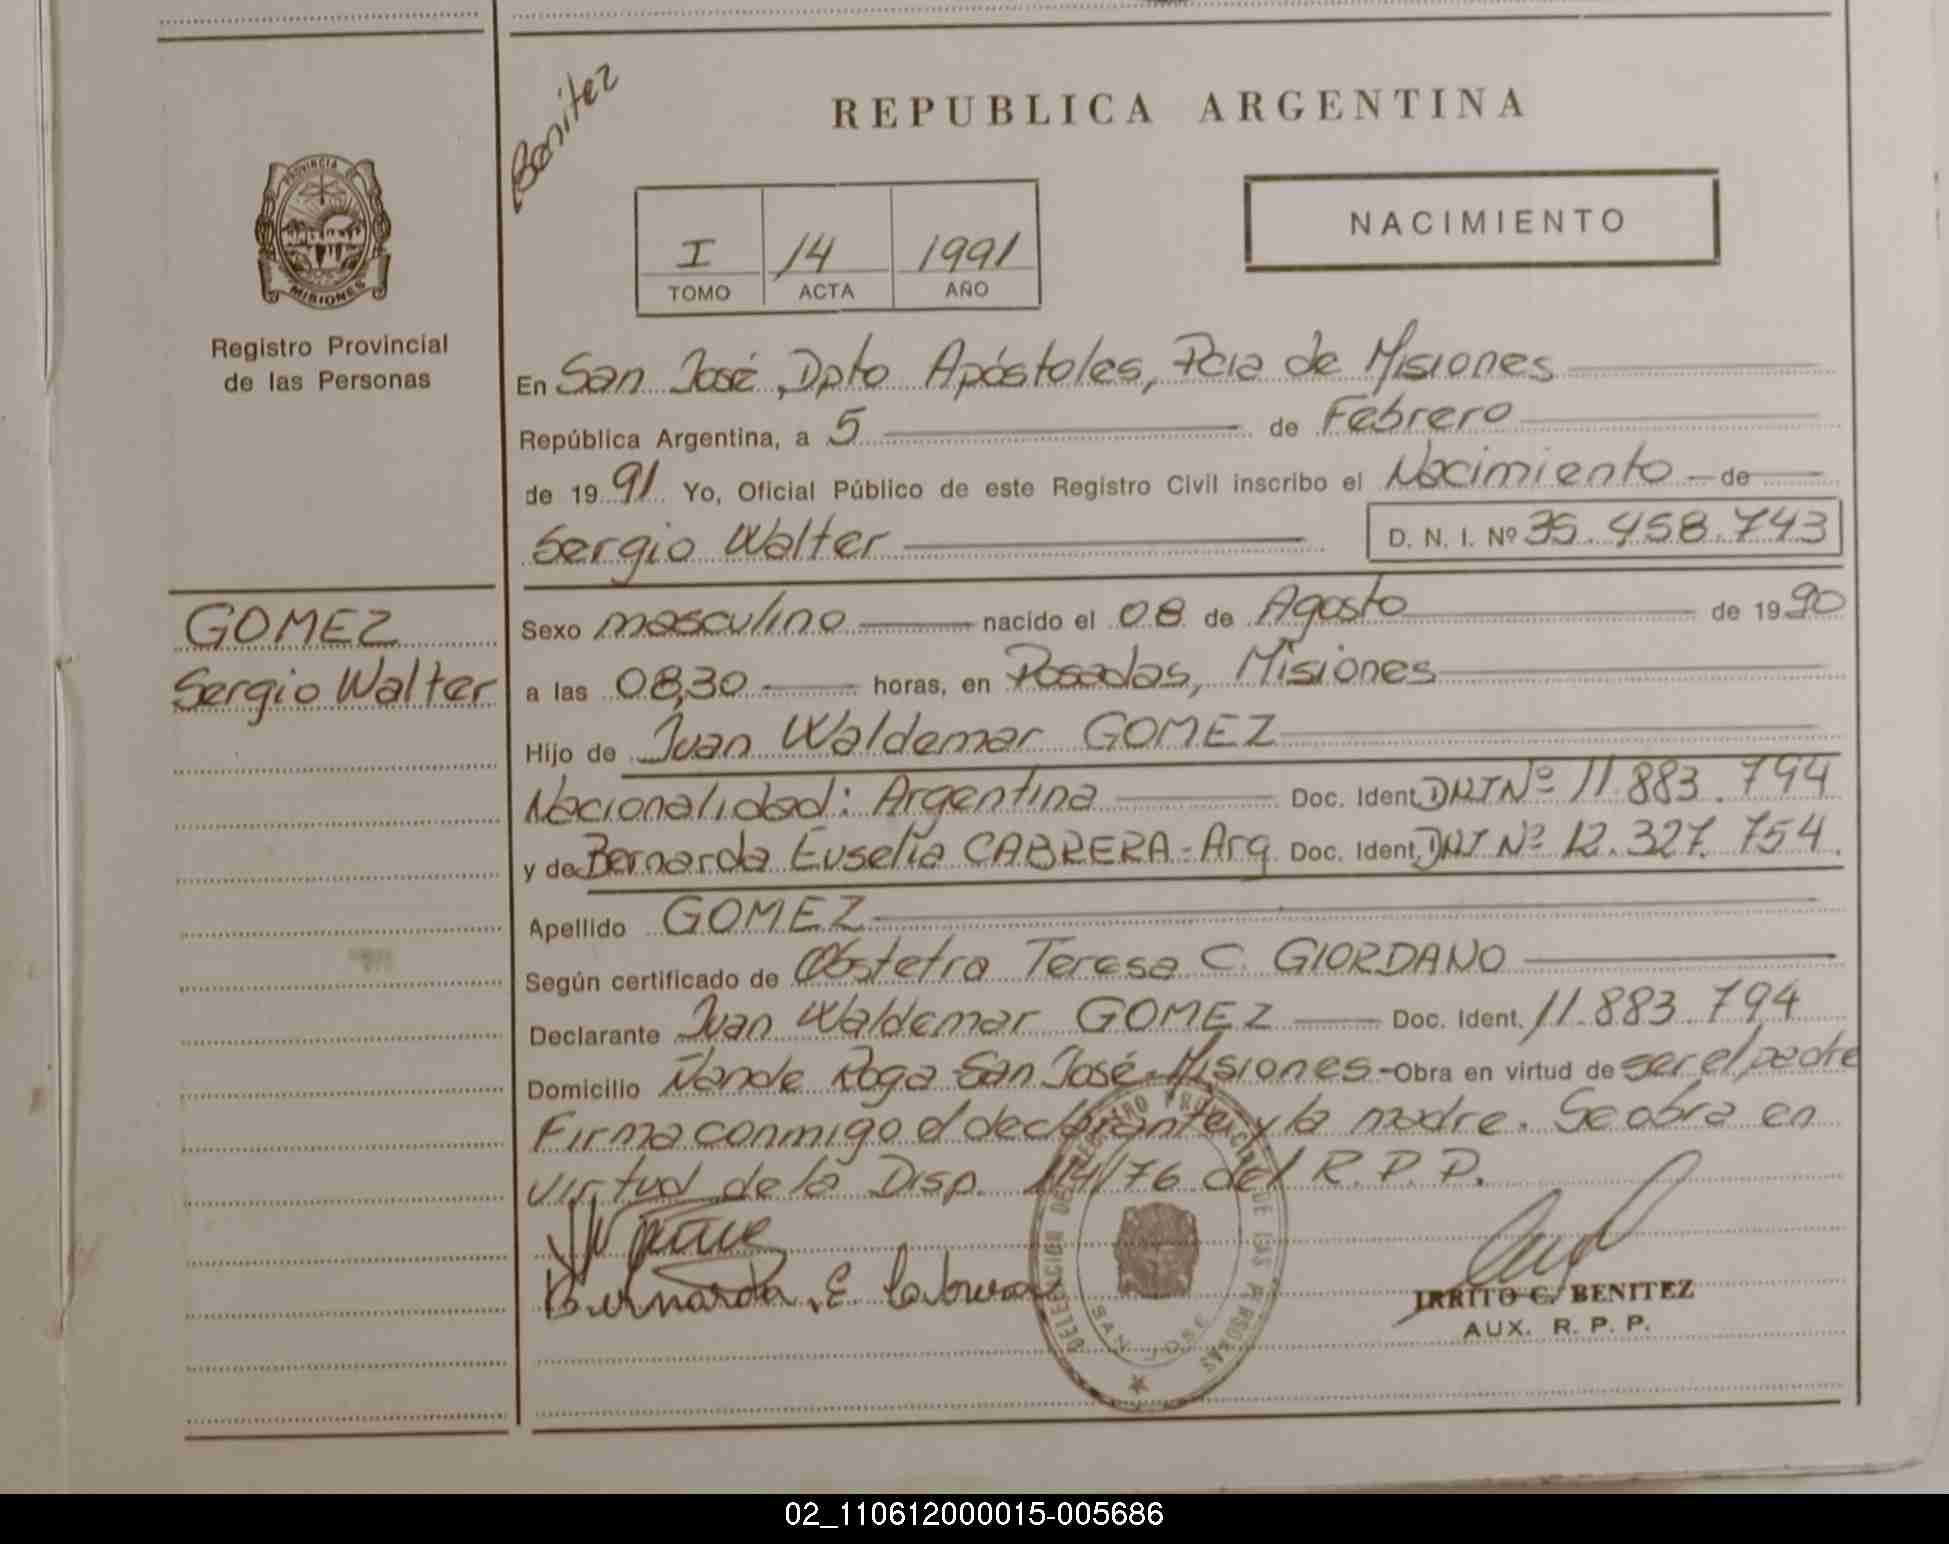 Benitez
REPUBLICA ARGENTINA
PROVINCIA DE
MISIONES
NACIMIENTO
I 14 1991
TOMO ACTA AÑO
Registro Provincial
de las Personas
En San José, Dpto Apóstoles, Pcia de Misiones
República Argentina, a 5 de Febrero
de 1991 Yo, Oficial Público de este Registro Civil inscribo el Nacimiento - de
Sergio Walter D. N. I. Nº 35.458.743
GOMEZ
Sergio Walter
Sexo masculino nacido el 08 de Agosto de 1990
a las 08,30 horas, en Posadas, Misiones
Hijo de Juan Waldemar GOMEZ
Nacionalidad: Argentina Doc. Ident. DNI Nº 11.883.794
y de Bernarda Euselia CABRERA - Arg. Doc. Ident. DNI Nº 12.327.754.
Apellido GOMEZ
Según certificado de Obstetra Teresa C. GIORDANO
Declarante Juan Waldemar GOMEZ Doc. Ident. 11.883.794
Domicilio Ñande Roga - San José - Misiones - Obra en virtud de ser el padre
Firma conmigo el declarante y la madre. Se obra en
virtud de la Disp. 114/76 del R.P.P.
Bernarda. E. Cabrera
DELEGACION DEL REGISTRO PROVINCIAL DE LAS PERSONAS
SAN JOSE
IRRITO C. BENITEZ
AUX. R. P. P.
02_110612000015-005686